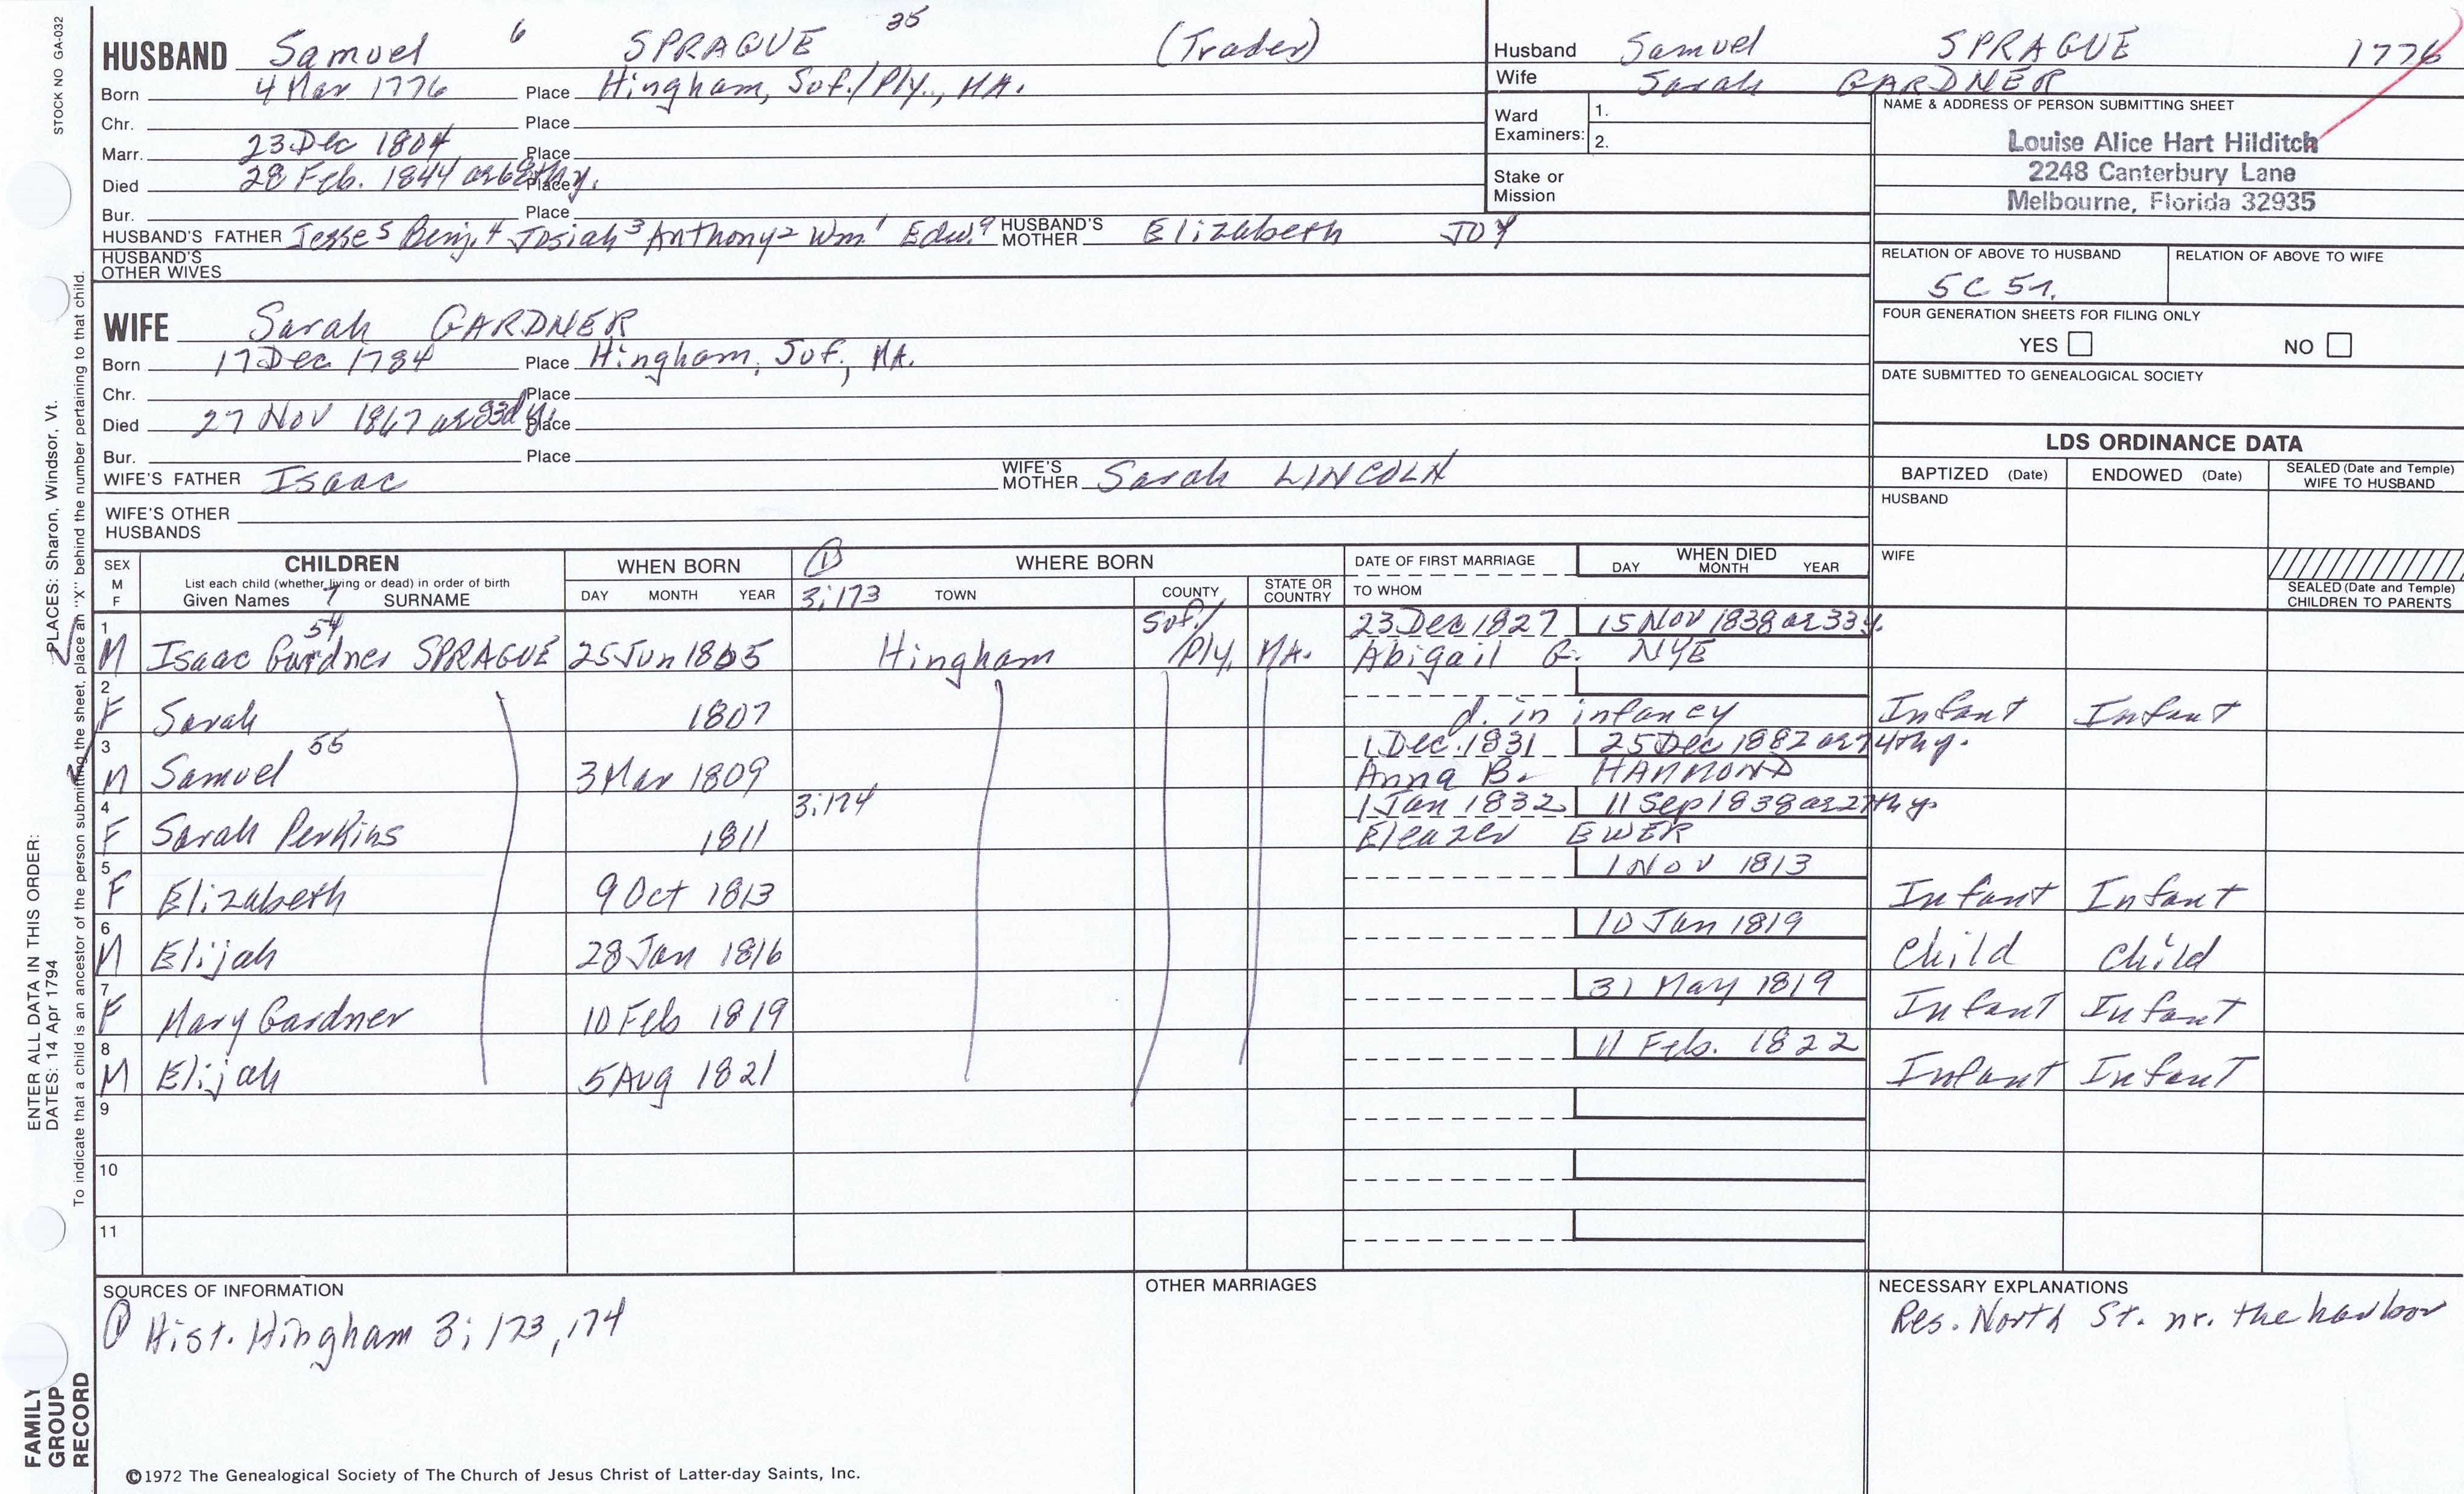 STOCK NO GA-032
HUSBAND Samuel 6 SPRAGUE 35 (Trader)
Born 4 Mar 1776 Place Hingham, Suf./Ply., MA.
Chr. Place
Marr. 23 Dec 1804 Place
Died 28 Feb. 1844 Place
Bur. Place
HUSBAND'S FATHER Jesse 5 Benj. 4 Josiah 3 Anthony 2 Wm. 1 Edw. 9 HUSBAND'S MOTHER Elizabeth JOY
HUSBAND'S OTHER WIVES
Husband Samuel SPRAGUE 1776
Wife Sarah GARDNER
Ward Examiners: 1.
2.
Stake or Mission
NAME & ADDRESS OF PERSON SUBMITTING SHEET
Louise Alice Hart Hilditch
2248 Canterbury Lane
Melbourne, Florida 32935
RELATION OF ABOVE TO HUSBAND RELATION OF ABOVE TO WIFE
5C 5r.
FOUR GENERATION SHEETS FOR FILING ONLY
YES NO
DATE SUBMITTED TO GENEALOGICAL SOCIETY
WIFE Sarah GARDNER
Born 17 Dec 1784 Place Hingham, Suf., MA.
Chr. Place
Died 27 Nov 1867 ae 83d y. Place
Bur. Place
WIFE'S FATHER Isaac WIFE'S MOTHER Sarah LINCOLN
WIFE'S OTHER HUSBANDS
LDS ORDINANCE DATA
BAPTIZED (Date) ENDOWED (Date) SEALED (Date and Temple) WIFE TO HUSBAND
HUSBAND
WIFE
SEALED (Date and Temple) CHILDREN TO PARENTS
SEX M F CHILDREN List each child (whether living or dead) in order of birth Given Names 7 SURNAME
WHEN BORN DAY MONTH YEAR
① 3:173 WHERE BORN TOWN COUNTY STATE OR COUNTRY
DATE OF FIRST MARRIAGE TO WHOM
WHEN DIED DAY MONTH YEAR
1 M Isaac Gardner 54 SPRAGUE 25 Jun 1805 Hingham Suf./Ply. MA. 23 Dec 1827 15 Nov 1838 ae 33 y.
Abigail G. NYE
2 F Sarah 1807 d. in infancy Infant Infant
3 M Samuel 55 3 Mar 1809 1 Dec. 1831 25 Dec 1882 ae 74th y.
Anna B. HAMMOND
4 F Sarah Perkins 1811 3:174 1 Jan 1832 11 Sep 1838 ae 27th y.
Eleazer EWER
5 F Elizabeth 9 Oct 1813 1 Nov 1813 Infant Infant
6 M Elijah 28 Jan 1816 10 Jan 1819 Child Child
7 F Mary Gardner 10 Feb 1819 31 May 1819 Infant Infant
8 M Elijah 5 Aug 1821 11 Feb. 1822 Infant Infant
9
10
11
SOURCES OF INFORMATION
① Hist. Hingham 3:173,174
OTHER MARRIAGES
NECESSARY EXPLANATIONS
Res. North St. nr. the harbor
©1972 The Genealogical Society of The Church of Jesus Christ of Latter-day Saints, Inc.
ENTER ALL DATA IN THIS ORDER:
DATES: 14 Apr 1794 PLACES: Sharon, Windsor, Vt.
To indicate that a child is an ancestor of the person submitting the sheet, place an "X" behind the number pertaining to that child.
FAMILY GROUP RECORD